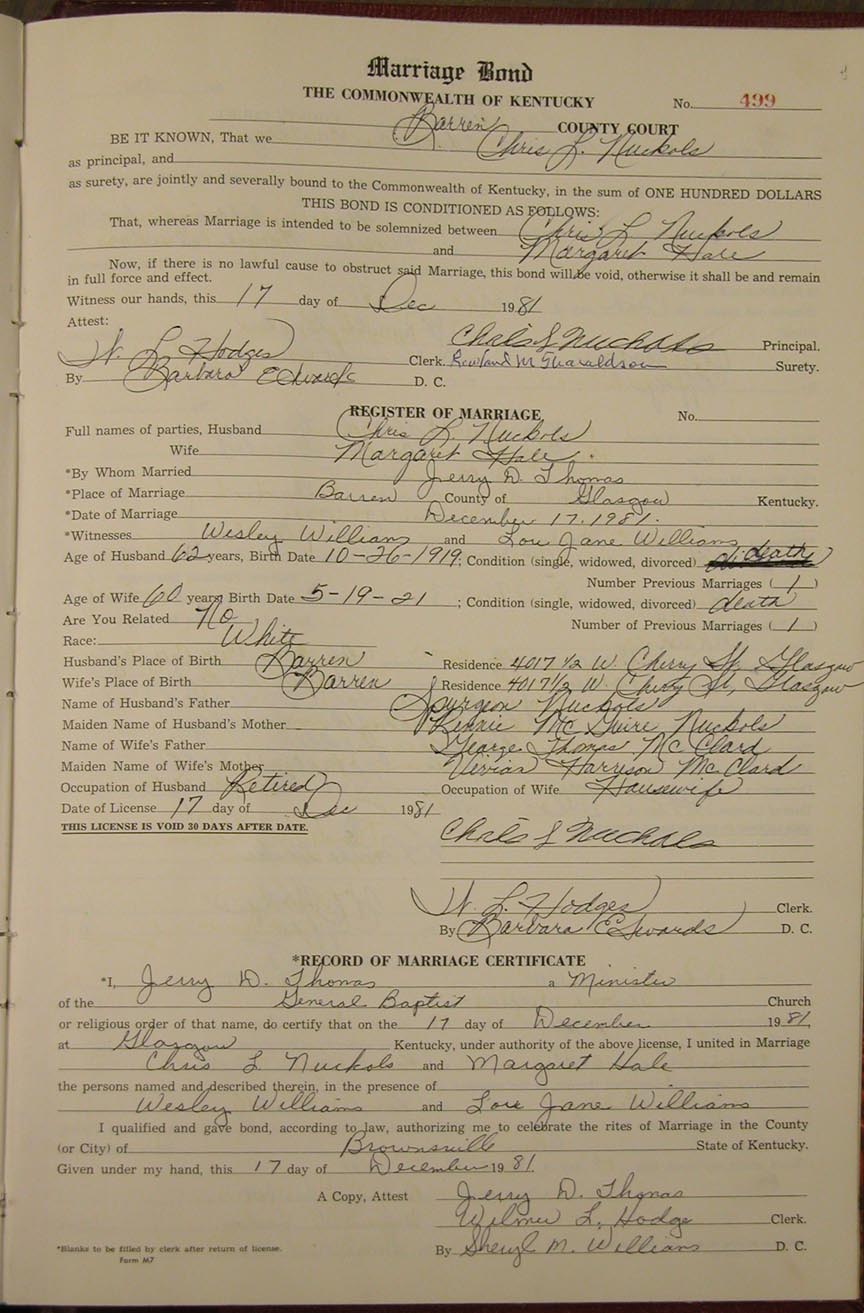 Marriage Bond
THE COMMONWEALTH OF KENTUCKY No. 499
Barren COUNTY COURT
BE IT KNOWN, That we Chris L. Nuckols
as principal, and
as surety, are jointly and severally bound to the Commonwealth of Kentucky, in the sum of ONE HUNDRED DOLLARS
THIS BOND IS CONDITIONED AS FOLLOWS:
That, whereas Marriage is intended to be solemnized between Chris L Nuckols
and Margaret Hale
Now, if there is no lawful cause to obstruct said Marriage, this bond will be void, otherwise it shall be and remain
in full force and effect.
Witness our hands, this 17 day of Dec 1981
Attest:
Nuckols Principal.
W. L. Hodges Clerk. Surety.
By Barbara Edwards D. C.
REGISTER OF MARRIAGE No.
Full names of parties, Husband Chris L. Nuckols
Wife Margaret Hale
*By Whom Married Jerry D. Thomas
*Place of Marriage Barren County of Glasgow Kentucky.
*Date of Marriage December 17, 1981.
*Witnesses Wesley Williams and Lou Jane Williams
Age of Husband 62 years, Birth Date 10-26-1919; Condition (single, widowed, divorced) death
Number Previous Marriages ( 1 )
Age of Wife 60 years, Birth Date 5-19-21; Condition (single, widowed, divorced) death
Are You Related No Number of Previous Marriages ( 1 )
Race: White
Husband's Place of Birth Barren Residence 4017 1/2 W. Cherry St, Glasgow
Wife's Place of Birth Barren Residence 4017 1/2 W. Cherry St, Glasgow
Name of Husband's Father Spurgeon Nuckols
Maiden Name of Husband's Mother McGuire Nuckols
Name of Wife's Father George Thomas McClard
Maiden Name of Wife's Mother Vivian Harrison McClard
Occupation of Husband Retired Occupation of Wife Housewife
Date of License 17 day of Dec 1981
THIS LICENSE IS VOID 30 DAYS AFTER DATE.
Nuckols
W. L. Hodges Clerk.
By Barbara Edwards D. C.
*RECORD OF MARRIAGE CERTIFICATE
*I, Jerry D. Thomas a Minister
of the General Baptist Church
or religious order of that name, do certify that on the 17 day of December 1981,
at Glasgow Kentucky, under authority of the above license, I united in Marriage
Chris L Nuckols and Margaret Hale
the persons named and described therein, in the presence of
Wesley Williams and Lou Jane Williams
I qualified and gave bond, according to law, authorizing me to celebrate the rites of Marriage in the County
(or City) of Brownsville State of Kentucky.
Given under my hand, this 17 day of December 1981.
A Copy, Attest Jerry D. Thomas
Wilmer L. Hodge Clerk.
*Blanks to be filled by clerk after return of license. By Sheryl M. Williams D. C.
Form M7